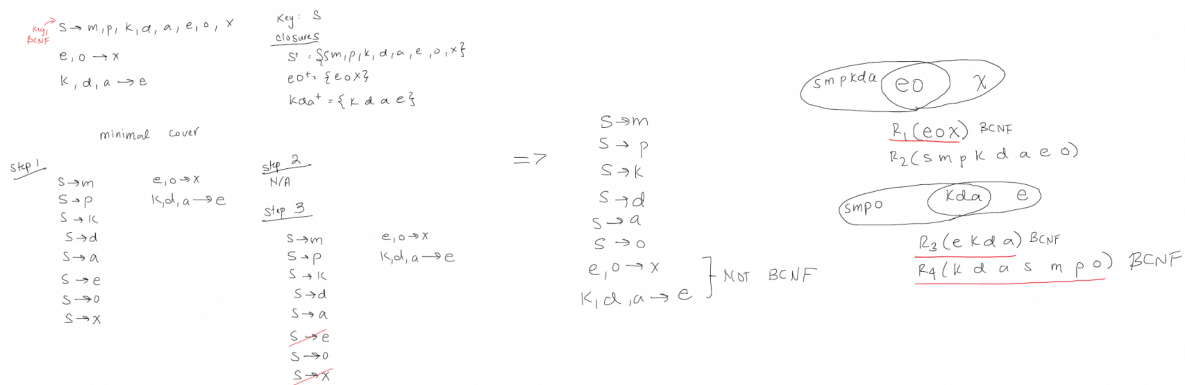 key, BCNF
S → m, p, k, d, a, e, o, x
e, o → x
k, d, a → e
Key: S
closures
S⁺ = {S m, p, k, d, a, e, o, x}
eo⁺ = {e o x}
kda⁺ = {k d a e}
minimal cover
Step 1
S → m
S → p
S → k
S → d
S → a
S → e
S → o
S → x
e, o → x
k, d, a → e
Step 2
N/A
Step 3
S → m
S → p
S → k
S → d
S → a
S → e
S → o
S → x
e, o → x
k, d, a → e
=>
S → m
S → p
S → k
S → d
S → a
S → o
e, o → x
k, d, a → e
NOT BCNF
smpkda eo x
R₁(eox) BCNF
R₂(s m p k d a e o)
smpo kda e
R₃(e k d a) BCNF
R₄(k d a s m p o) BCNF